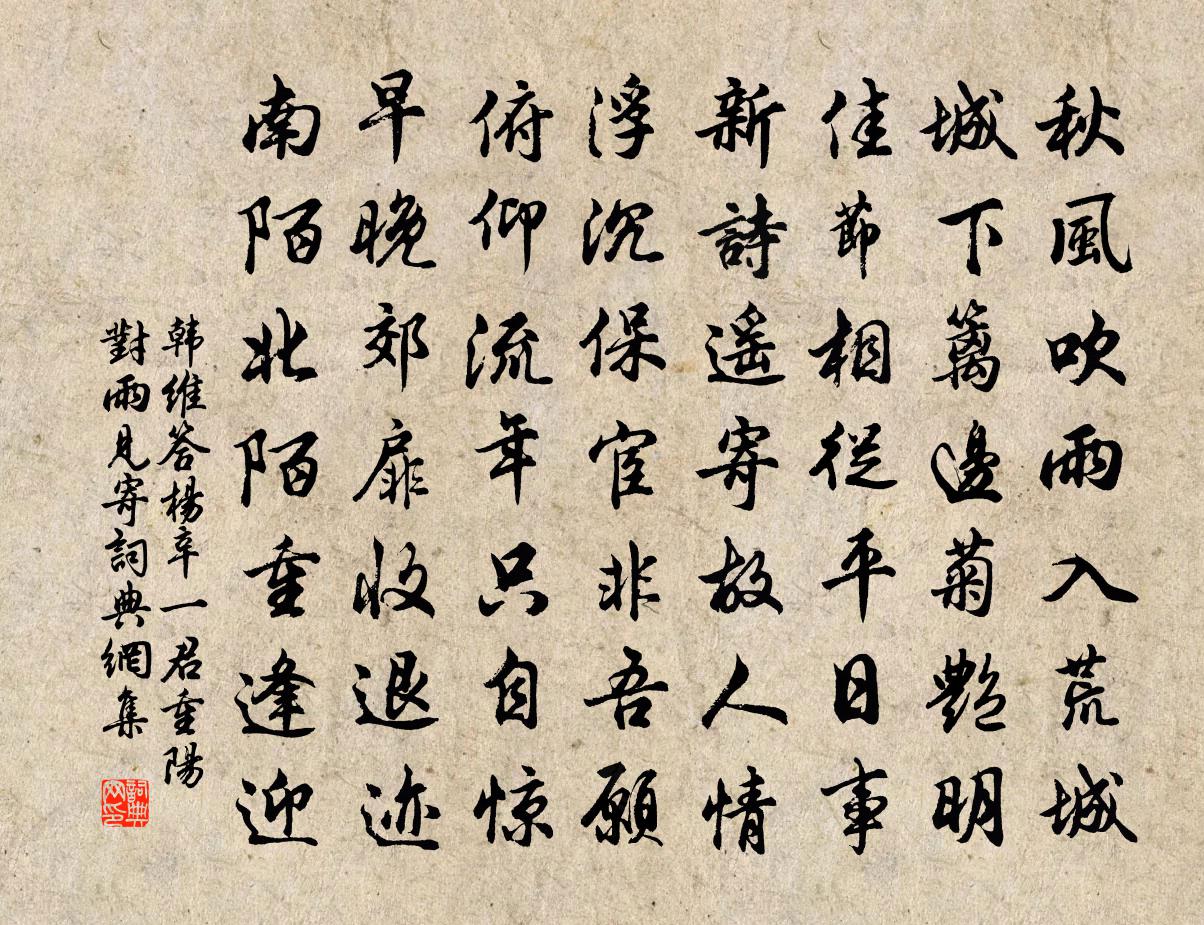 秋風吹雨入荒城
城下篱邊菊艷明
佳節相從平日事
新詩遥寄故人情
浮沉保宦非吾願
俯仰流年只自惊
早晚郊扉收退迹
南陌北陌重逢迎
韩維答楊卒一君重陽
對雨見寄詞典網集
詞典网印